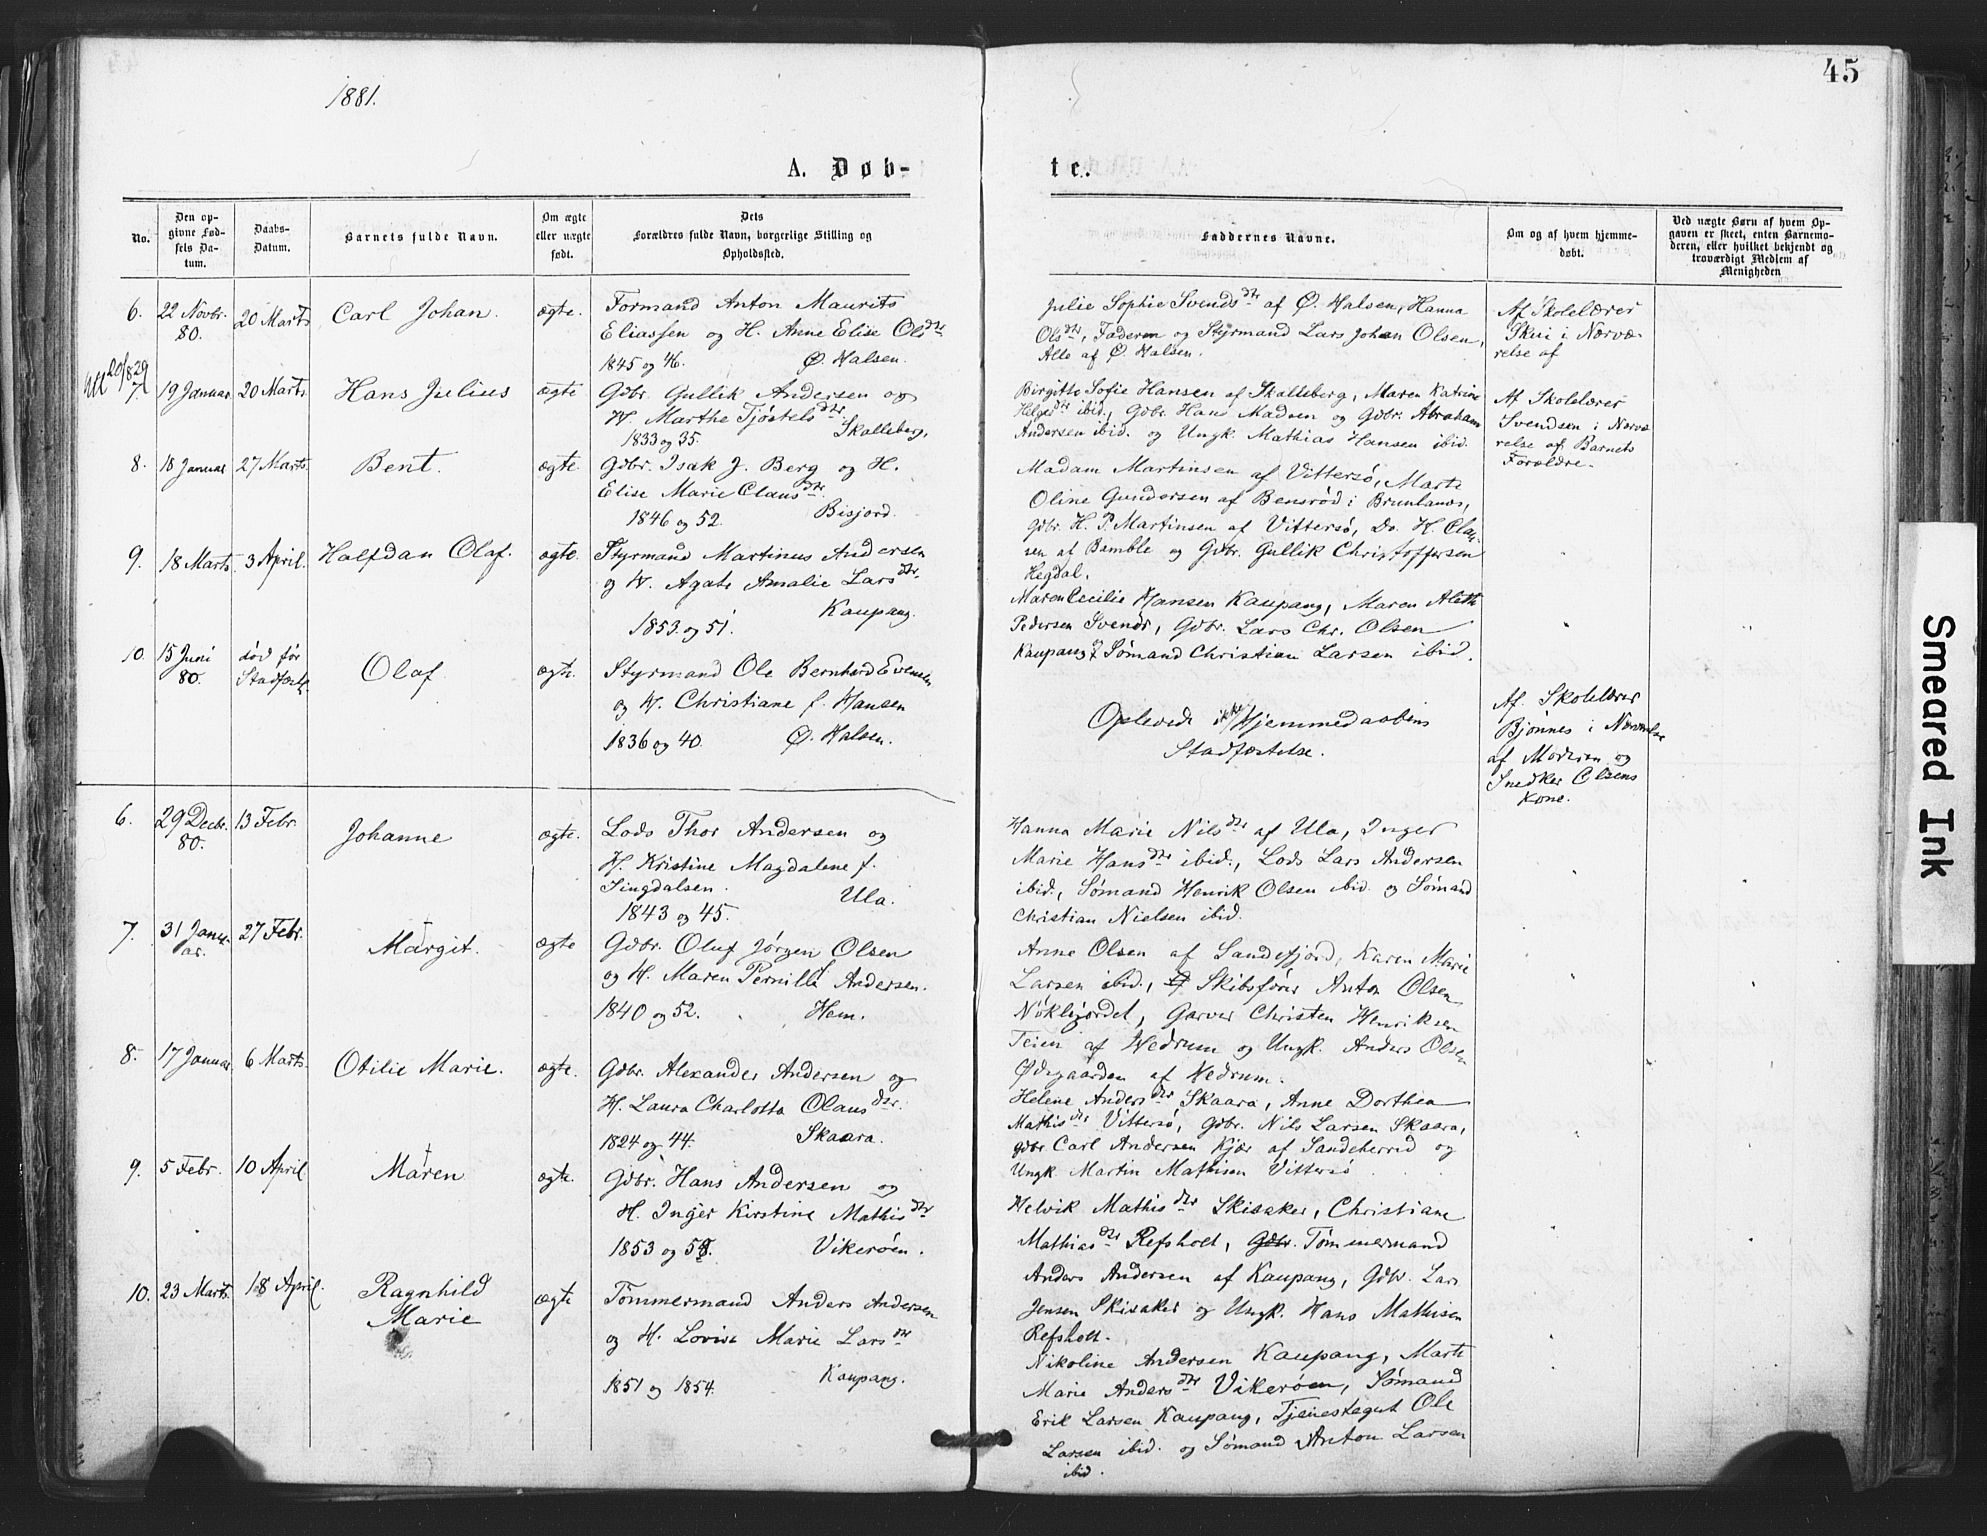 1881.
45
A. Døb-
te.
No.
Den op-
givne Fød-
sels Da-
tum.
Daabs-
Datum.
Barnets fulde Navn.
Om ægte
eller uægte
født.
Dets
Forældres fulde Navn, borgerlige Stilling og
Opholdssted.
Faddernes Navne.
Om og af hvem hjemme-
døbt.
Ved uægte Børn af hvem Op-
gaven er skeet, enten Barnemo-
deren, eller hvilket bekjendt og
troværdigt Medlem af
Menigheden
6.
22 Novbr.
80.
20 Marts
Carl Johan.
ægte.
Formand Anton Maurits
Eliassen og H. Anne Elise Olsdtr
1845 og 46. Ø. Halsen.
Julie Sophie Svendsdtr af Ø. Halsen, Hanna
Olsdtr, Faderen og Styrmand Lars Johan Olsen,
Alle af Ø. Halsen.
Af Skolelærer
Skui i Nærvæ-
relse af
29/8 29
7.
19 Januar
20 Marts
Hans Julius
ægte
Gdbr. Gullik Andersen og
H. Marthe Tjøstelsdtr
1833 og 35. Skalleberg.
Birgitte Sofie Hansen af Skalleberg, Maren Katrine
Helgesdtr ibid., Gdbr. Hans Madsen og Gdbr. Abraham
Andersen ibid. og Ungk. Mathias Hansen ibid.
Af Skolelærer
Svendsen i Nærvæ
relse af Barnets
Forældre.
8.
18 Januar
27 Marts.
Bent.
ægte
Gdbr. Isak J. Berg og H.
Elise Marie Clausdtr.
1846 og 52. Bisjord.
Madam Martinsen af Vittersø, Marte
Oline Gundersen af Bensrød i Brunlanes,
Gdbr. H. P. Martinsen af Vittersø, Do. H. Clau-
sen af Bamble og Gdbr. Gullik Christoffersen
Hegdal.
9.
18 Marts
3 April.
Halfdan Olaf.
ægte.
Styrmand Martinus Andersen
og H. Agate Amalie Larsdtr.
1853. og 51. Kaupang.
Maren Cecilie Hansen Kaupang, Maren Aleth
Pedersen Svendr, Gdbr. Lars Chr. Olsen
Kaupang & Sømand Christian Larsen ibid.
10.
15 Juni
80.
død før
Stadfæst.
Olaf
ægte.
Styrmand Ole Bernhard Evensen
og H. Christiane f. Hansen
1836 og 40. Ø. Halsen.
Oplevede ikke Hjemmedaabens
Stadfæstelse.
Af Skolelærer
Bjønnes i Nærværelse
af Moderen og
Snedker Olsens
Kone.
6.
29 Decbr.
80.
13 Febr.
Johanne
ægte.
Lods Thor Andersen og
H. Kristine Magdalene f.
Singdalsen. Ula.
1843 og 45.
Hanna Marie Nilsdtr af Ula, Inger
Marie Hansdtr ibid., Lods Lars Andersen
ibid., Sømand Henrik Olsen ibid. og Sømand
Christian Nielsen ibid.
7.
31 Janu-
ar.
27 Febr.
Margit.
ægte
Gdbr. Oluf Jørgen Olsen
og H. Maren Pernille Andersen.
1840 og 52. Hem.
Anne Olsen af Sandefjord, Karen Marie
Larsen ibid., Skibsfører Anton Olsen
Nøklegårdet, Garver Christen Henriksen
Teien af Hedrum og Ungk. Anders Olsen
Ødegaarden af Hedrum.
8.
17 Januar
6 Marts.
Otilie Marie.
ægte.
Gdbr. Alexander Andersen og
H. Laura Charlotta Olausdtr.
1824 og 44. Skaara.
Helene Andersdtr Skaara, Anne Dorthea
Mathisdtr Vittersø, Gdbr. Nils Larsen Skaara,
Gdbr Carl Andersen Kjær af Sandeherred og
Ungk. Martin Mathisen Vittersø
9.
5 Febr.
10 April
Maren
ægte.
Gdbr. Hans Andersen og
H. Inger Kirstine Mathisdtr
1853 og 58. Vikerøen.
Helvik Mathisdtr Skisaker, Christiane
Mathiasdtr Refsholt, Gdbr. Tømmermand
Anders Andersen af Kaupang, Gdbr. Lars
Jensen Skisaker og Ungk. Hans Mathisen
Refsholt.
10.
23 Marts.
18 April.
Ragnhild
Marie
ægte
Tømmermand Anders Andersen
og H. Lovise Marie Larsdtr
1851 og 1854. Kaupang.
Nikoline Andersen Kaupang, Marte
Marie Andersdtr Vikerøen, Sømand
Erik Larsen Kaupang, Tjenestegut Ole
Larsen ibid. og Sømand Anton Larsen
ibid.
Smeared Ink